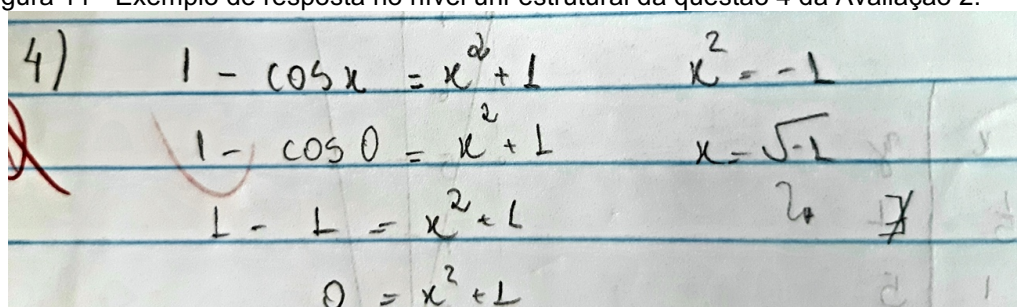 Figura 11 - Exemplo de resposta no nível uni-estrutural da questão 4 da Avaliação 2.
4) 1 - cos x = x² + 1
1 - cos 0 = x² + 1
1 - 1 = x² + 1
0 = x² + 1
x² = -1
x = √-1